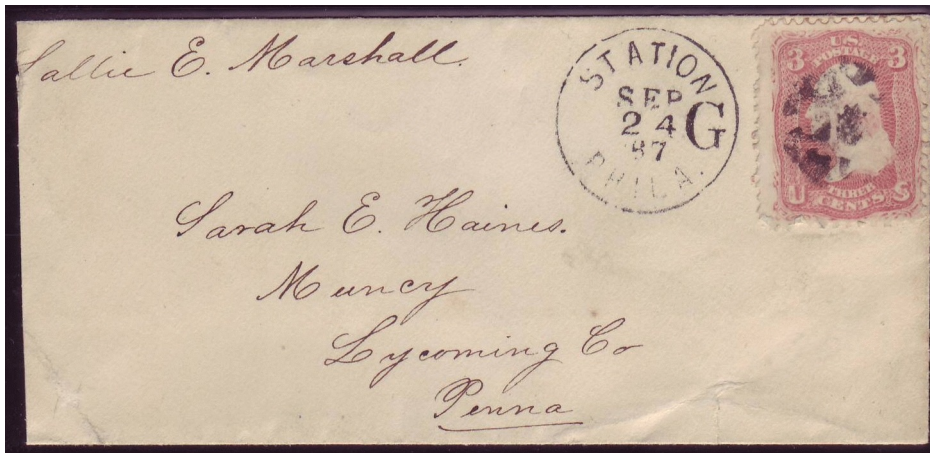 Sallie E. Marshall.
STATION G
SEP
24
'67
PHILA.
3 U.S. 3
POSTAGE
U THREE S
CENTS
Sarah E. Haines.
Muncy
Lycoming Co
Penna